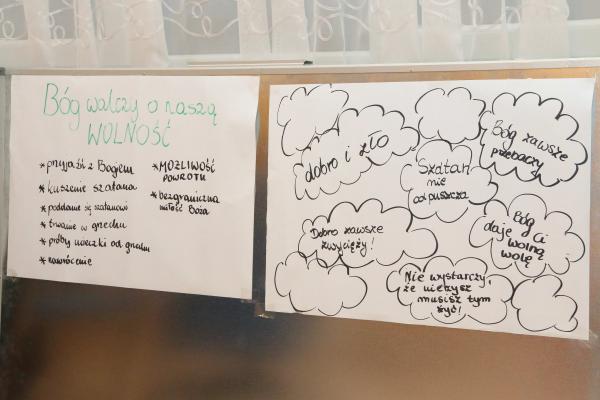 Bóg walczy o naszą
WOLNOŚĆ
* przyjaźń z Bogiem
* kuszenie szatana
* poddanie się szatanowi
* trwanie w grzechu
* próby ucieczki od grzechu
* nawrócenie
* MOŻLIWOŚĆ
POWROTU
* bezgraniczna
miłość Boża
dobro i zło
Szatan
nie
odpuszcza
Bóg zawsze
przebaczy
Dobro zawsze
zwycięży!
Bóg
daje Ci
wolną
wolę
Nie wystarczy,
że wierzysz
musisz tym
żyć!